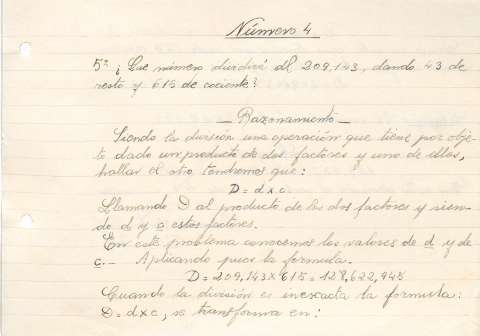 Número 4
5º ¿Que número dividirá al 209,143, dando 43 de
resto y 615 de cociente?
— Razonamiento —
Siendo la división una operación que tiene por obje-
to dado un producto de dos factores y uno de ellos,
hallar el otro tendremos que:
D = d x c.
Llamando D al producto de los dos factores y sien-
do d y c estos factores.
En este problema conocemos los valores de d y de
c. — Aplicando pues la formula.
D = 209,143 x 615 = 128,622,945
Cuando la división es inexacta la formula:
D = d x c, se transforma en: